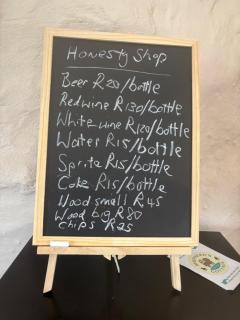 Honesty Shop
Beer R20/bottle
Red wine R130/bottle
White wine R120/bottle
Water R15/bottle
Sprite R15/bottle
Coke R15/bottle
Wood small R45
Wood big R80
Chips R25